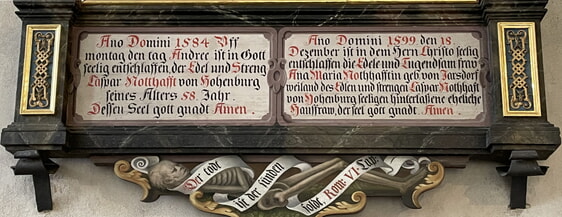 Ano Domini 1584 Vff
montag den tag Andree ist in Gott
seelig entschlaffen, der Edel und Streng
Caspar Nothhafft von Hohenburg
seines Alters 58. Jahr.
Dessen Seel gott gnadt Amen.
Ano Domini 1599 den 18
Dezember ist in dem Hern Christo seelig
entschlaffen die Edele und Tugendsam fraw
Ana Maria Nothhafftin geb von Jarsdorf
weiland des Edlen und strengen Caspar Nothhafft
von Hohenburg seeligen hinterlasene eheliche
Hausfraw, der seel gott gnadt. Amen.
Der todt
ist der sünden
soldt. Rom: VI. Cap: